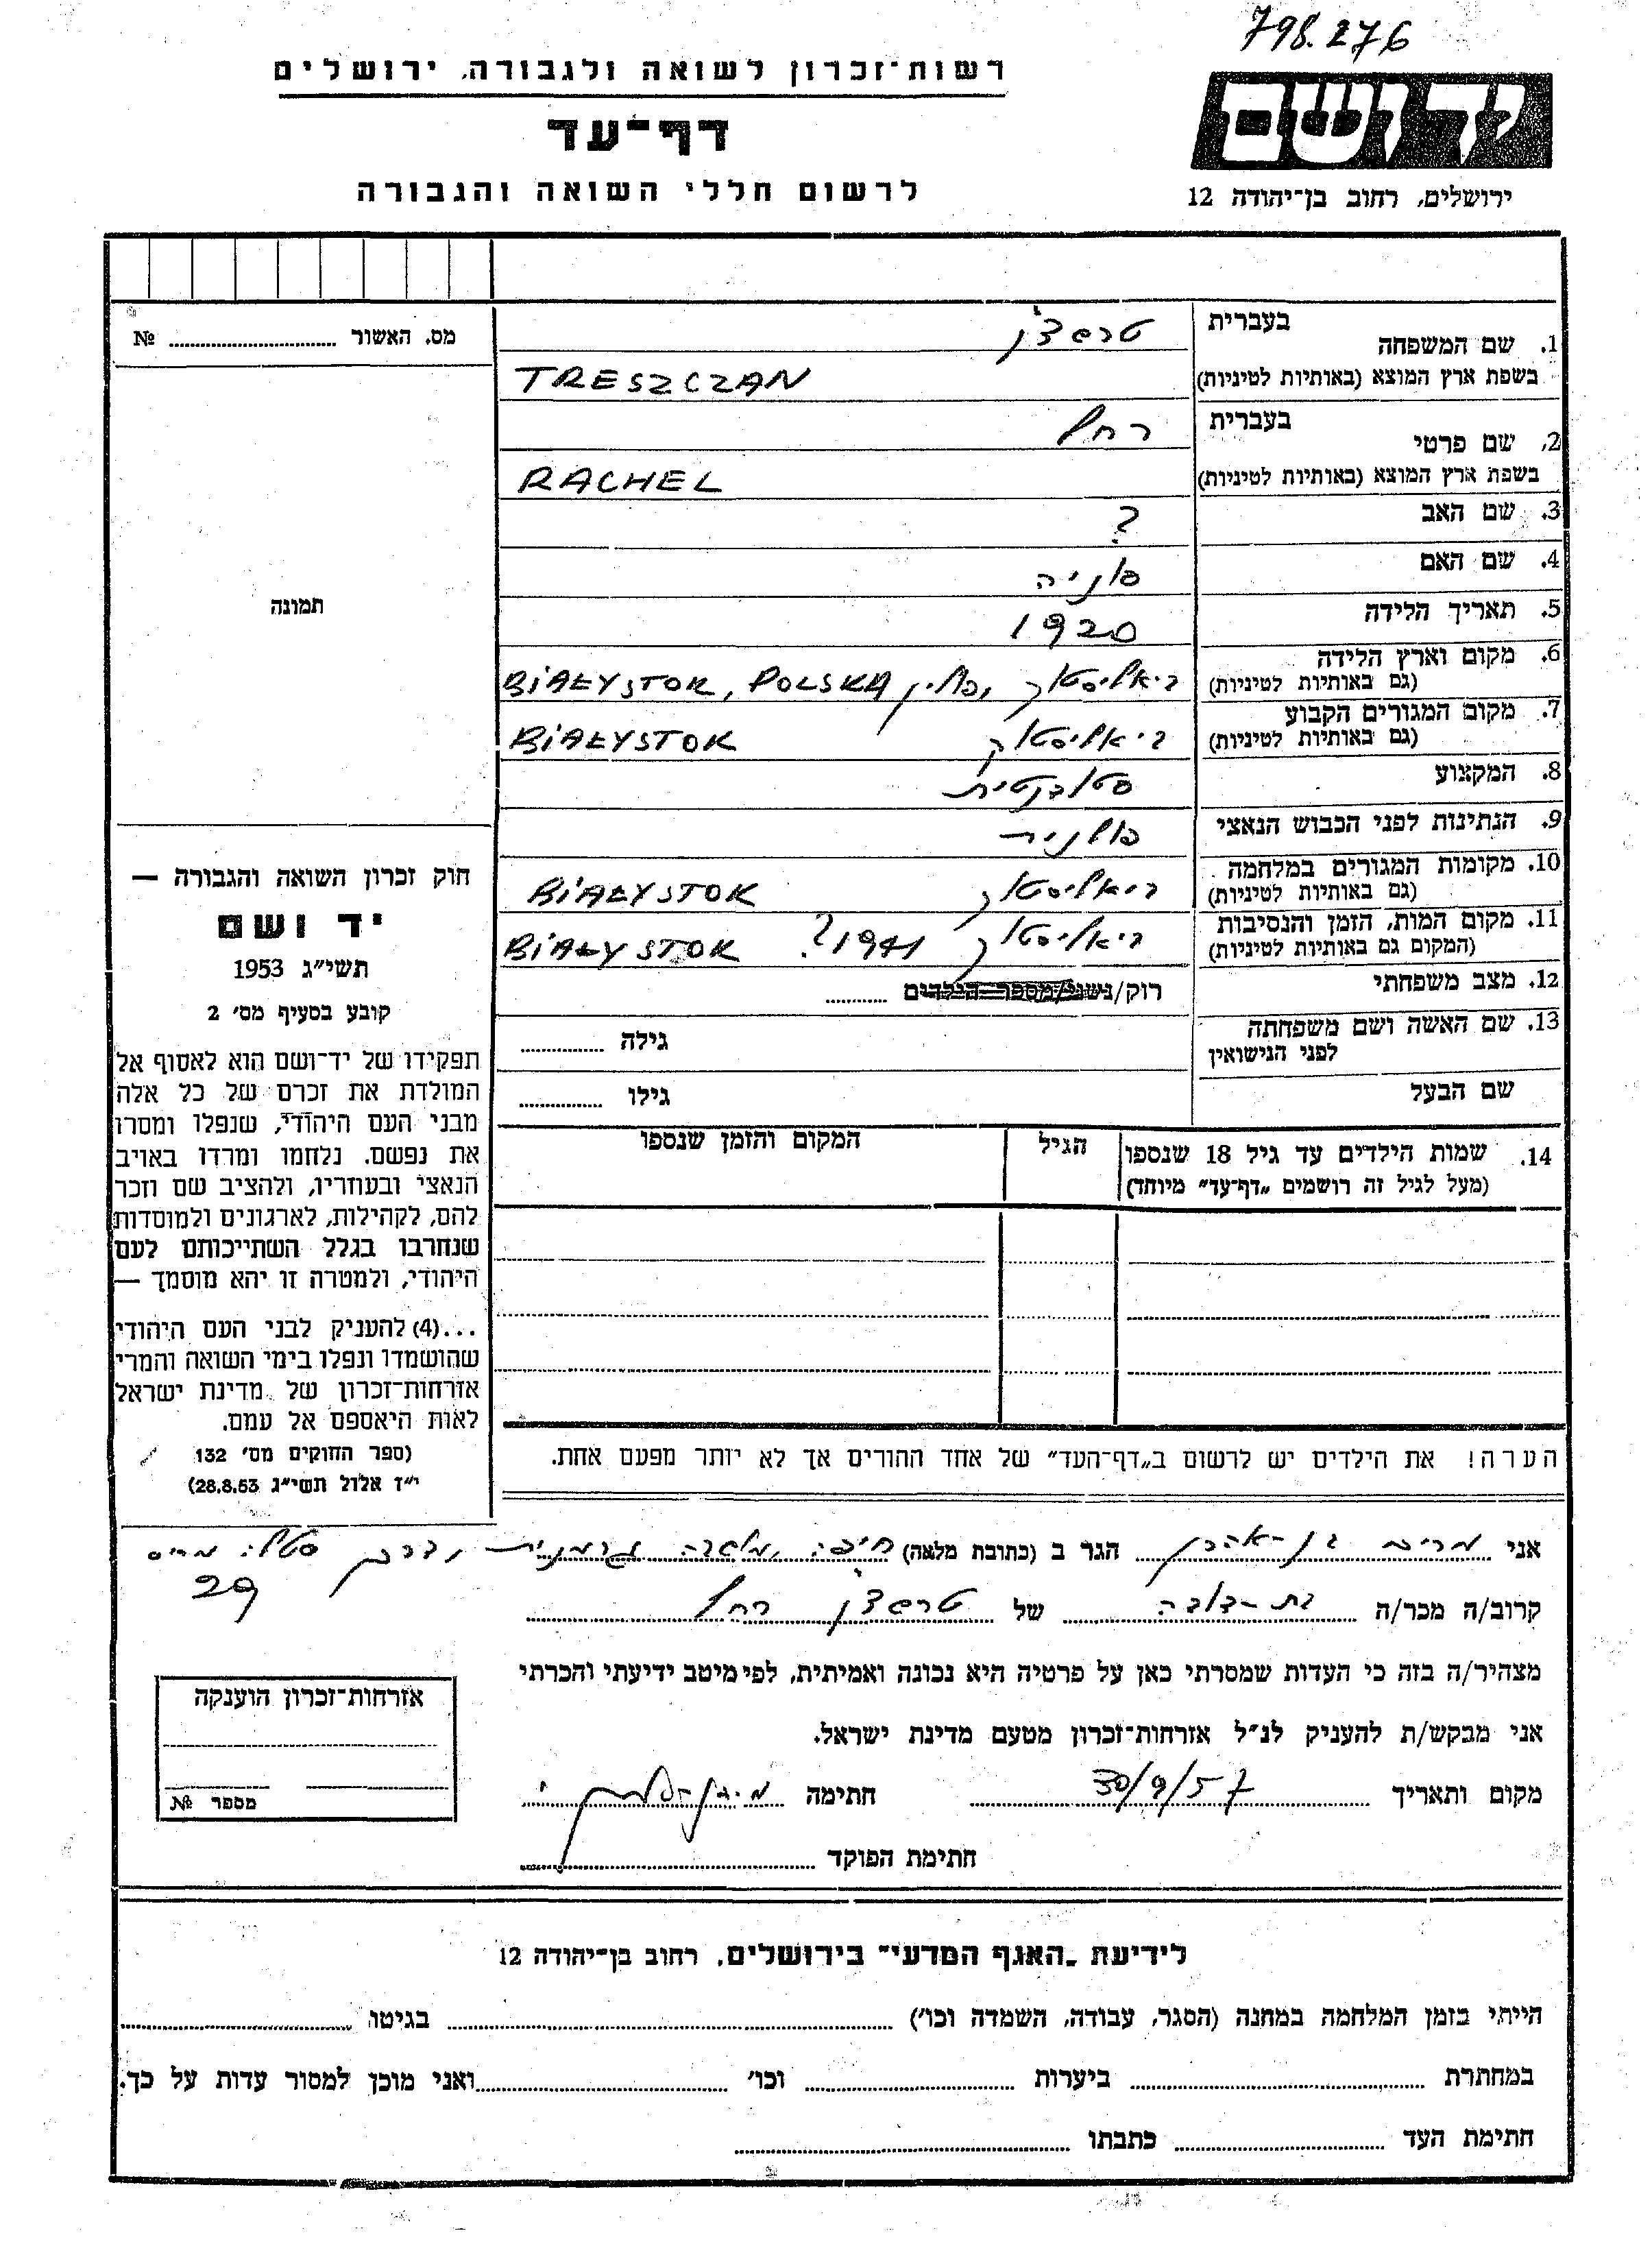 798.276
רשות־זכרון לשואה ולגבורה, ירושלים
דף־עד
לרשום חללי השואה והגבורה
יד ושם
ירושלים, רחוב בן־יהודה 12
מס. האשור № 
1. שם המשפחה בעברית טרשצ'ן
בשפת ארץ המוצא (באותיות לטיניות) TRESZCZAN
2. שם פרטי בעברית רחל
בשפת ארץ המוצא (באותיות לטיניות) RACHEL
3. שם האב ?
4. שם האם סוניה
5. תאריך הלידה 1920
6. מקום וארץ הלידה (גם באותיות לטיניות) ביאליסטוק, פולין BIAŁYSTOK, POLSKA
7. מקום המגורים הקבוע (גם באותיות לטיניות) ביאליסטוק BIAŁYSTOK
8. המקצוע סטודנטית
9. הנתינות לפני הכבוש הנאצי פולנית
10. מקומות המגורים במלחמה (גם באותיות לטיניות) ביאליסטוק BIAŁYSTOK
11. מקום המות, הזמן והנסיבות (המקום גם באותיות לטיניות) ביאליסטוק 1941 ? BIAŁYSTOK
12. מצב משפחתי רוק/נשוי/מספר הילדים
13. שם האשה ושם משפחתה לפני הנישואין גילה
שם הבעל גילו
14. שמות הילדים עד גיל 18 שנספו (מעל לגיל זה רושמים „דף־עד" מיוחד) הגיל המקום והזמן שנספו
תמונה
חוק זכרון השואה והגבורה —
יד ושם
תשי"ג 1953
קובע בסעיף מס' 2
תפקידו של יד־ושם הוא לאסוף אל
המולדת את זכרם של כל אלה
מבני העם היהודי, שנפלו ומסרו
את נפשם. נלחמו ומרדו באויב
הנאצי ובעוזריו, ולהציב שם וזכר
להם, לקהילות, לארגונים ולמוסדות
שנחרבו בגלל השתייכותם לעם
היהודי, ולמטרה זו יהא מוסמך —
...(4) להעניק לבני העם היהודי
שהושמדו ונפלו בימי השואה והמרי
אזרחות־זכרון של מדינת ישראל
לאות היאספם אל עמם.
(ספר החוקים מס' 132
י"ז אלול תשי"ג 28.8.53)
הערה! את הילדים יש לרשום ב„דף־העד" של אחד ההורים אך לא יותר מפעם אחת.
אני מרים בן-אהרן הגר ב (כתובת מלאה) חיפה, מושבה גרמנית, דרך סטלה מריס
29
קרוב/ה מכר/ה בת-דודה של טרשצ'ן רחל
מצהיר/ה בזה כי העדות שמסרתי כאן על פרטיה היא נכונה ואמיתית, לפי מיטב ידיעתי והכרתי
אני מבקש/ת להעניק לנ"ל אזרחות־זכרון מטעם מדינת ישראל.
מקום ותאריך 30/9/57 חתימה
חתימת הפוקד
אזרחות־זכרון הוענקה
מספר №
לידיעת „האגף המדעי" בירושלים, רחוב בן־יהודה 12
הייתי בזמן המלחמה במחנה (הסגר, עבודה, השמדה וכו') בגיטו
במחתרת ביערות וכו' ואני מוכן למסור עדות על כך.
חתימת העד כתבתו